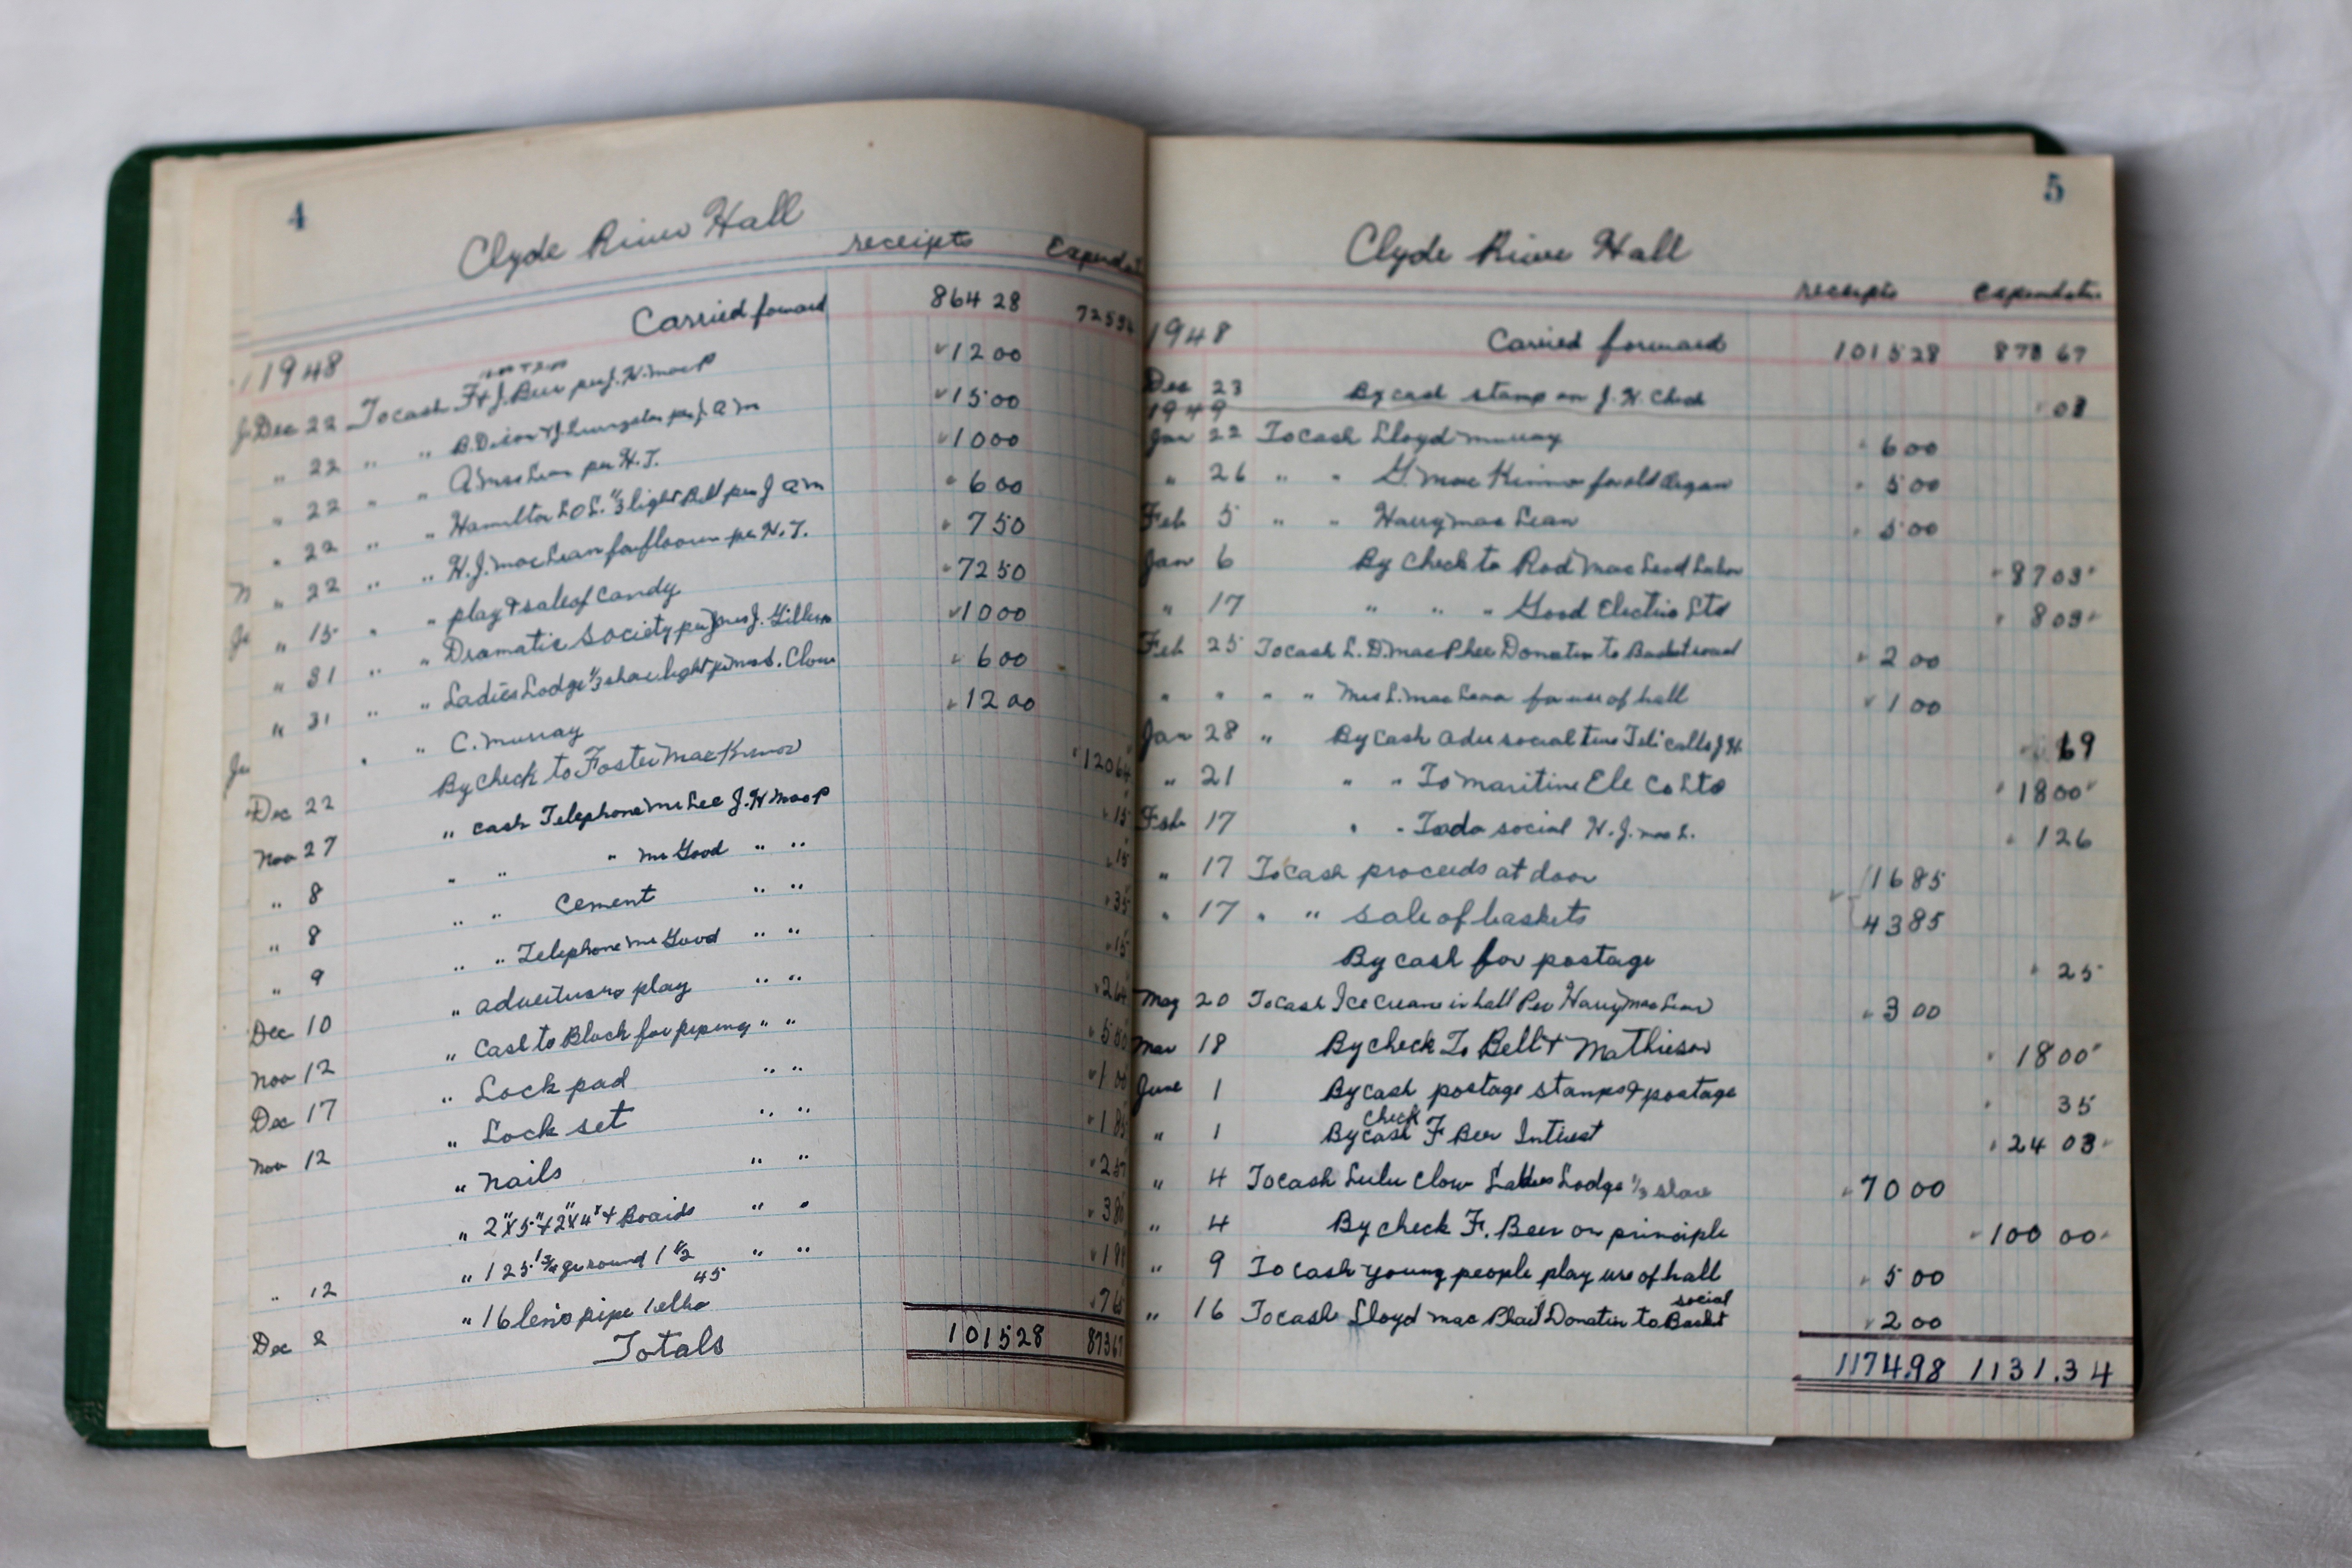 4
Clyde River Hall
receipts
Carried forward 864 28
1948
Dec 22 To cash F & J. Beer per J. H. MacP 12 00
" 22 " " B. Dixon & J Livingston per J. A M 15 00
" 22 " " A MacLean per H. J. 10 00
" 22 " " Hamilton L O L. 1/3 light Bill per J A M 6 00
" 22 " " H. J. MacLean for flooring per H. J. 7 50
" 15 " " play & sale of candy 72 50
" 31 " " Dramatic Society per J. 10 00
" 31 " " Ladies Lodge 1/3 share light per Clow 6 00
" " C. Murray 12 00
Dec 22 By check to Foster MacKinnon 120 64
Nov 27 " cash Telephone Mr Lee J. H MacP 15
" 8 " " " Mr Good " " 15
" 8 " " Cement " " 35
" 9 " " Telephone Mr Good " " 15
Dec 10 " play " "
Nov 12 " Cash to Block for piping " "
Dec 17 " Lock pad " " 1 00
Nov 12 " Lock set " "
" Nails " "
" 2"x5"+2"x4"+ Boards " "
" 12 " 125 ground 1 1/2 " "
Dec 2 " 16 pipe 1 elbo 45
Totals 1015 28 873 67
5
Clyde River Hall
receipts
1948 Carried forward 1015 28 873 67
Dec 23 By cash stamp on J. H. Check 03
1949
Jan 22 To cash Lloyd Murray 6 00
" 26 " " G. MacKinnon for old Organ 5 00
Feb 5 " " Harry MacLean 5 00
Jan 6 By Check to Rod MacLeod Labor 87 03
" 17 " " " Good Electric Ltd 8 03
Feb 25 To cash L. D. MacPhee Donation to Basket social 2 00
" " " " Mrs L. MacLean for use of hall 1 00
Jan 28 " By Cash Adv social time Tele calls J. H. 69
" 21 " " To Maritime Ele Co Ltd 18 00
Feb 17 " " To ado social H. J. Mac L. 1 26
" 17 To cash proceeds at door 16 85
" 17 " " sale of baskets 43 85
By cash for postage 25
May 20 To cash Ice Cream in hall Per Harry MacLean 3 00
Mar 18 By check To Bell & Mathieson 18 00
June 1 By cash postage stamps & postage 35
check
" 1 By cash F Beer Intrest 24 03
" 4 To cash Lulu Clow Ladies Lodge 1/3 share 70 00
" 4 By check F. Beer on principle 100 00
" 9 To cash young people play use of hall 5 00
social
" 16 To cash Lloyd MacPhail Donation to Basket 2 00
1174.98 1131.34